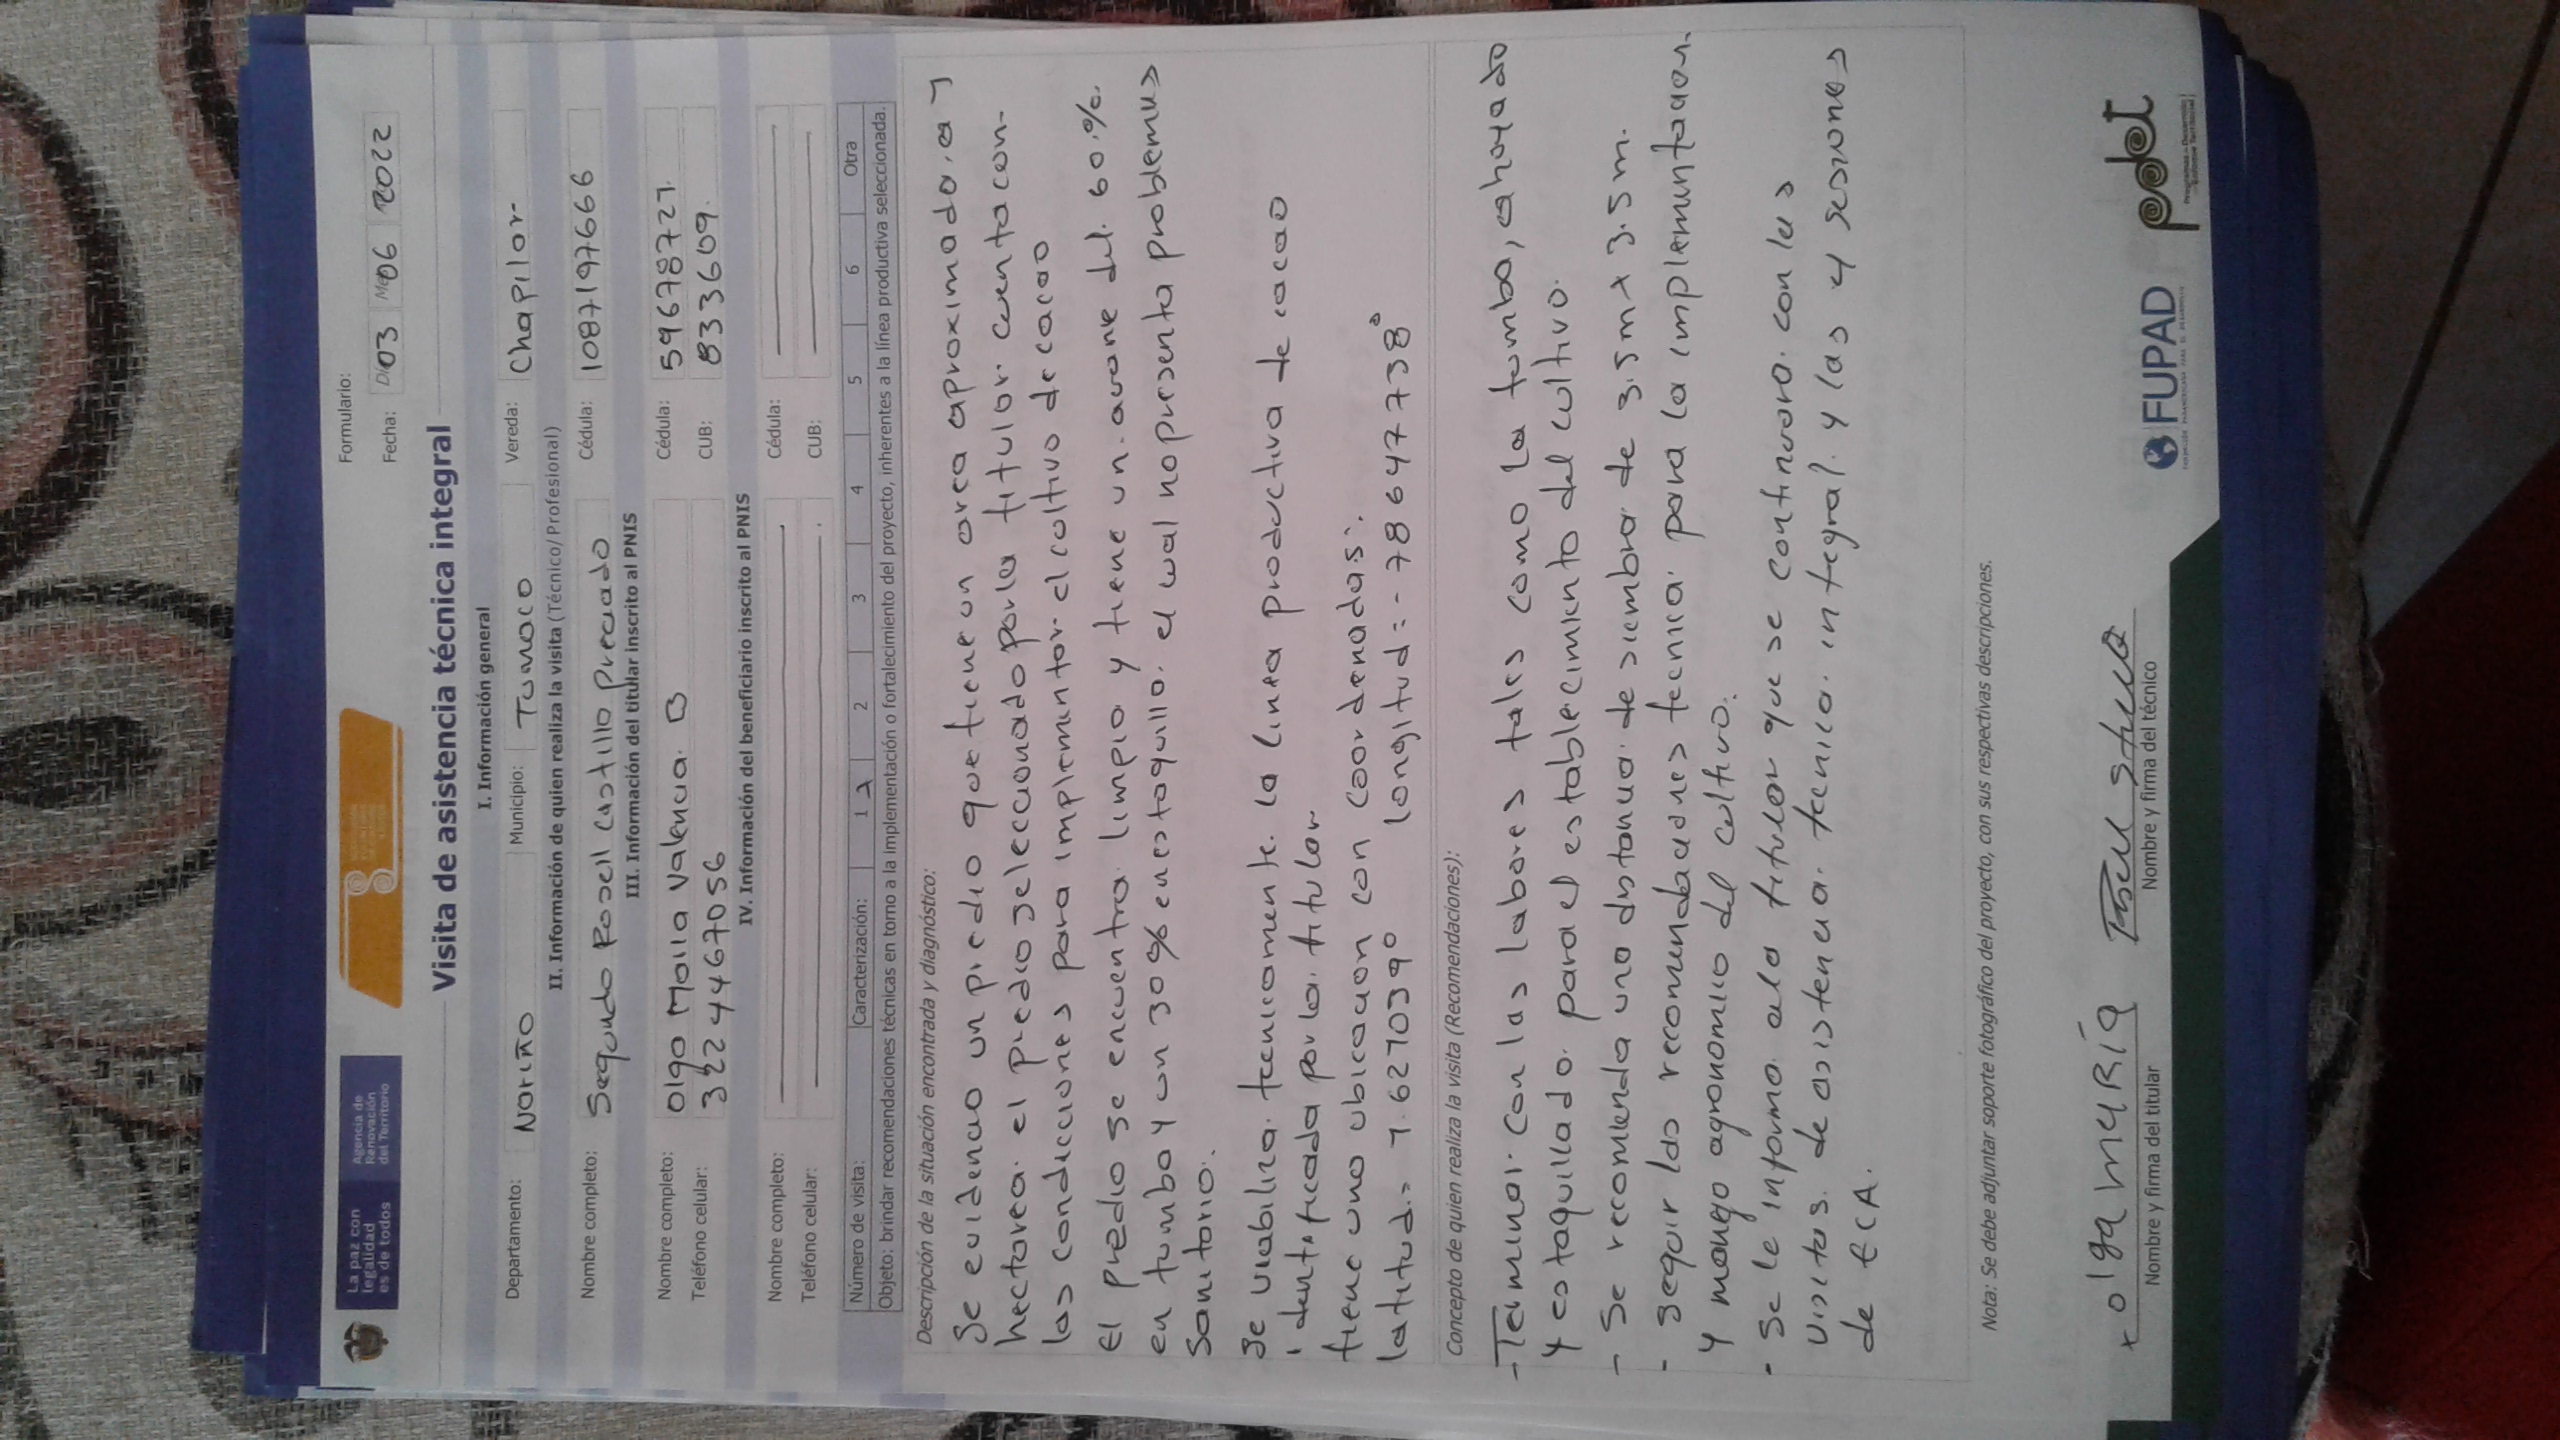 La paz con
legalidad
es de todos
Agencia de
Renovación
del Territorio
Formulario:
Fecha: Día 03 Me 06 2022
Visita de asistencia técnica integral
I. Información general
Departamento: Nariño Municipio: Tumaco Vereda: Chapilar
II. Información de quien realiza la visita (Técnico/ Profesional)
Nombre completo: Segundo Rosell Castillo Preciado Cédula: 1087197666
III. Información del titular inscrito al PNIS
Nombre completo: Olga Maria Valencia B Cédula: 59678727.
Teléfono celular: 3224467056 CUB: 833609.
IV. Información del beneficiario inscrito al PNIS
Nombre completo: Cédula:
Teléfono celular: CUB:
Número de visita: Caracterización: 1 2 3 4 5 6 Otra
Objeto: brindar recomendaciones técnicas en torno a la implementación o fortalecimiento del proyecto, inherentes a la línea productiva seleccionada.
Descripción de la situación encontrada y diagnóstico:
Se evidencio un predio que tiene un area aproximada, a 1
hectarea. el predio seleccionado por la titular cuenta con
las condiciones para implementar el cultivo de cacao
El predio se encuentra limpio y tiene un avance del 60%.
en tumba y un 30% en estaquillo. el cual no presenta problemas
sanitario.
Se viabiliza tecnicamente la linea productiva de cacao
identificada por la titular
tiene una ubicacion con coordenadas:
latitud = 1.627039° longitud = -78647738°
Concepto de quien realiza la visita (Recomendaciones):
- Terminar con las labores tales como la tumba, ahoyado
y estaquillado para el establecimiento del cultivo.
- Se recomienda una distancia de siembra de 3.5m x 3.5m.
- Seguir las recomendaciones tecnica para la implementacion
y manejo agronomico del cultivo.
- Se le informa a la titular que se continuara con las
visitas de asistencia tecnica integral y las 4 sesiones
de ECA.
Nota: Se debe adjuntar soporte fotográfico del proyecto, con sus respectivas descripciones.
x olga maría
Nombre y firma del titular
Nombre y firma del técnico
FUPAD
pdet